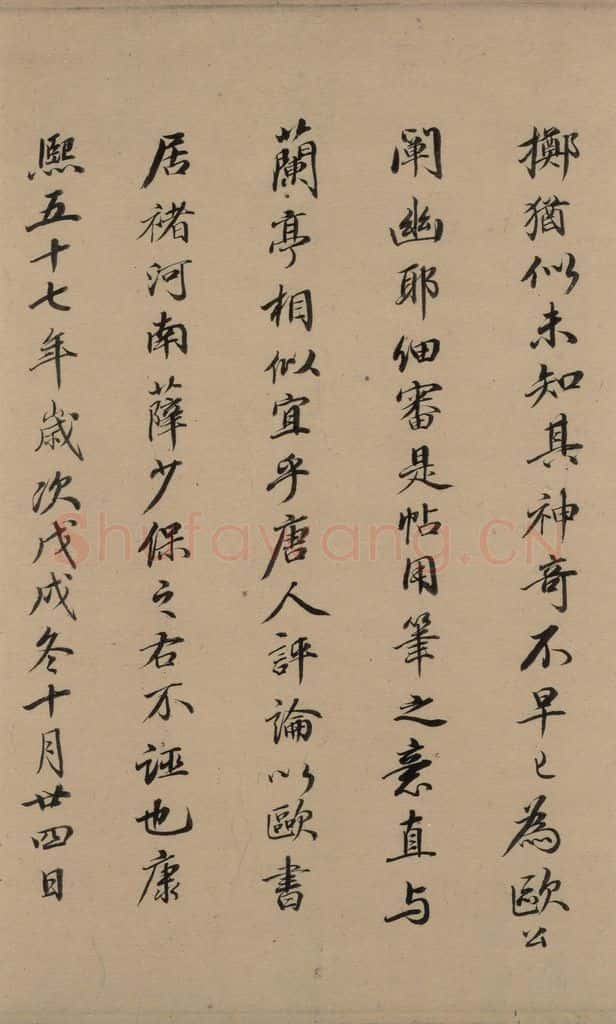 擲猶似未知其神奇不早已為歐公
闡幽耶細審是帖用筆之意直与
蘭亭相似宜乎唐人評論以歐書
居褚河南薛少保之右不誣也康
熙五十七年歲次戊戌冬十月廿四日
Shufawang.CN